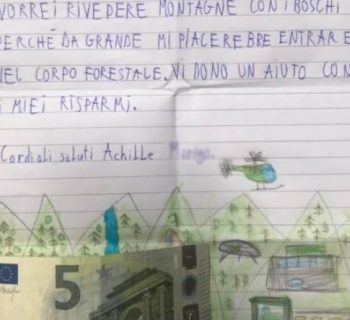 VORREI RIVEDERE MONTAGNE CON I BOSCHI
PERCHÉ DA GRANDE MI PIACEREBBE ENTRARE
NEL CORPO FORESTALE. VI DONO UN AIUTO CON
I MIEI RISPARMI.
Cordiali saluti Achille
5